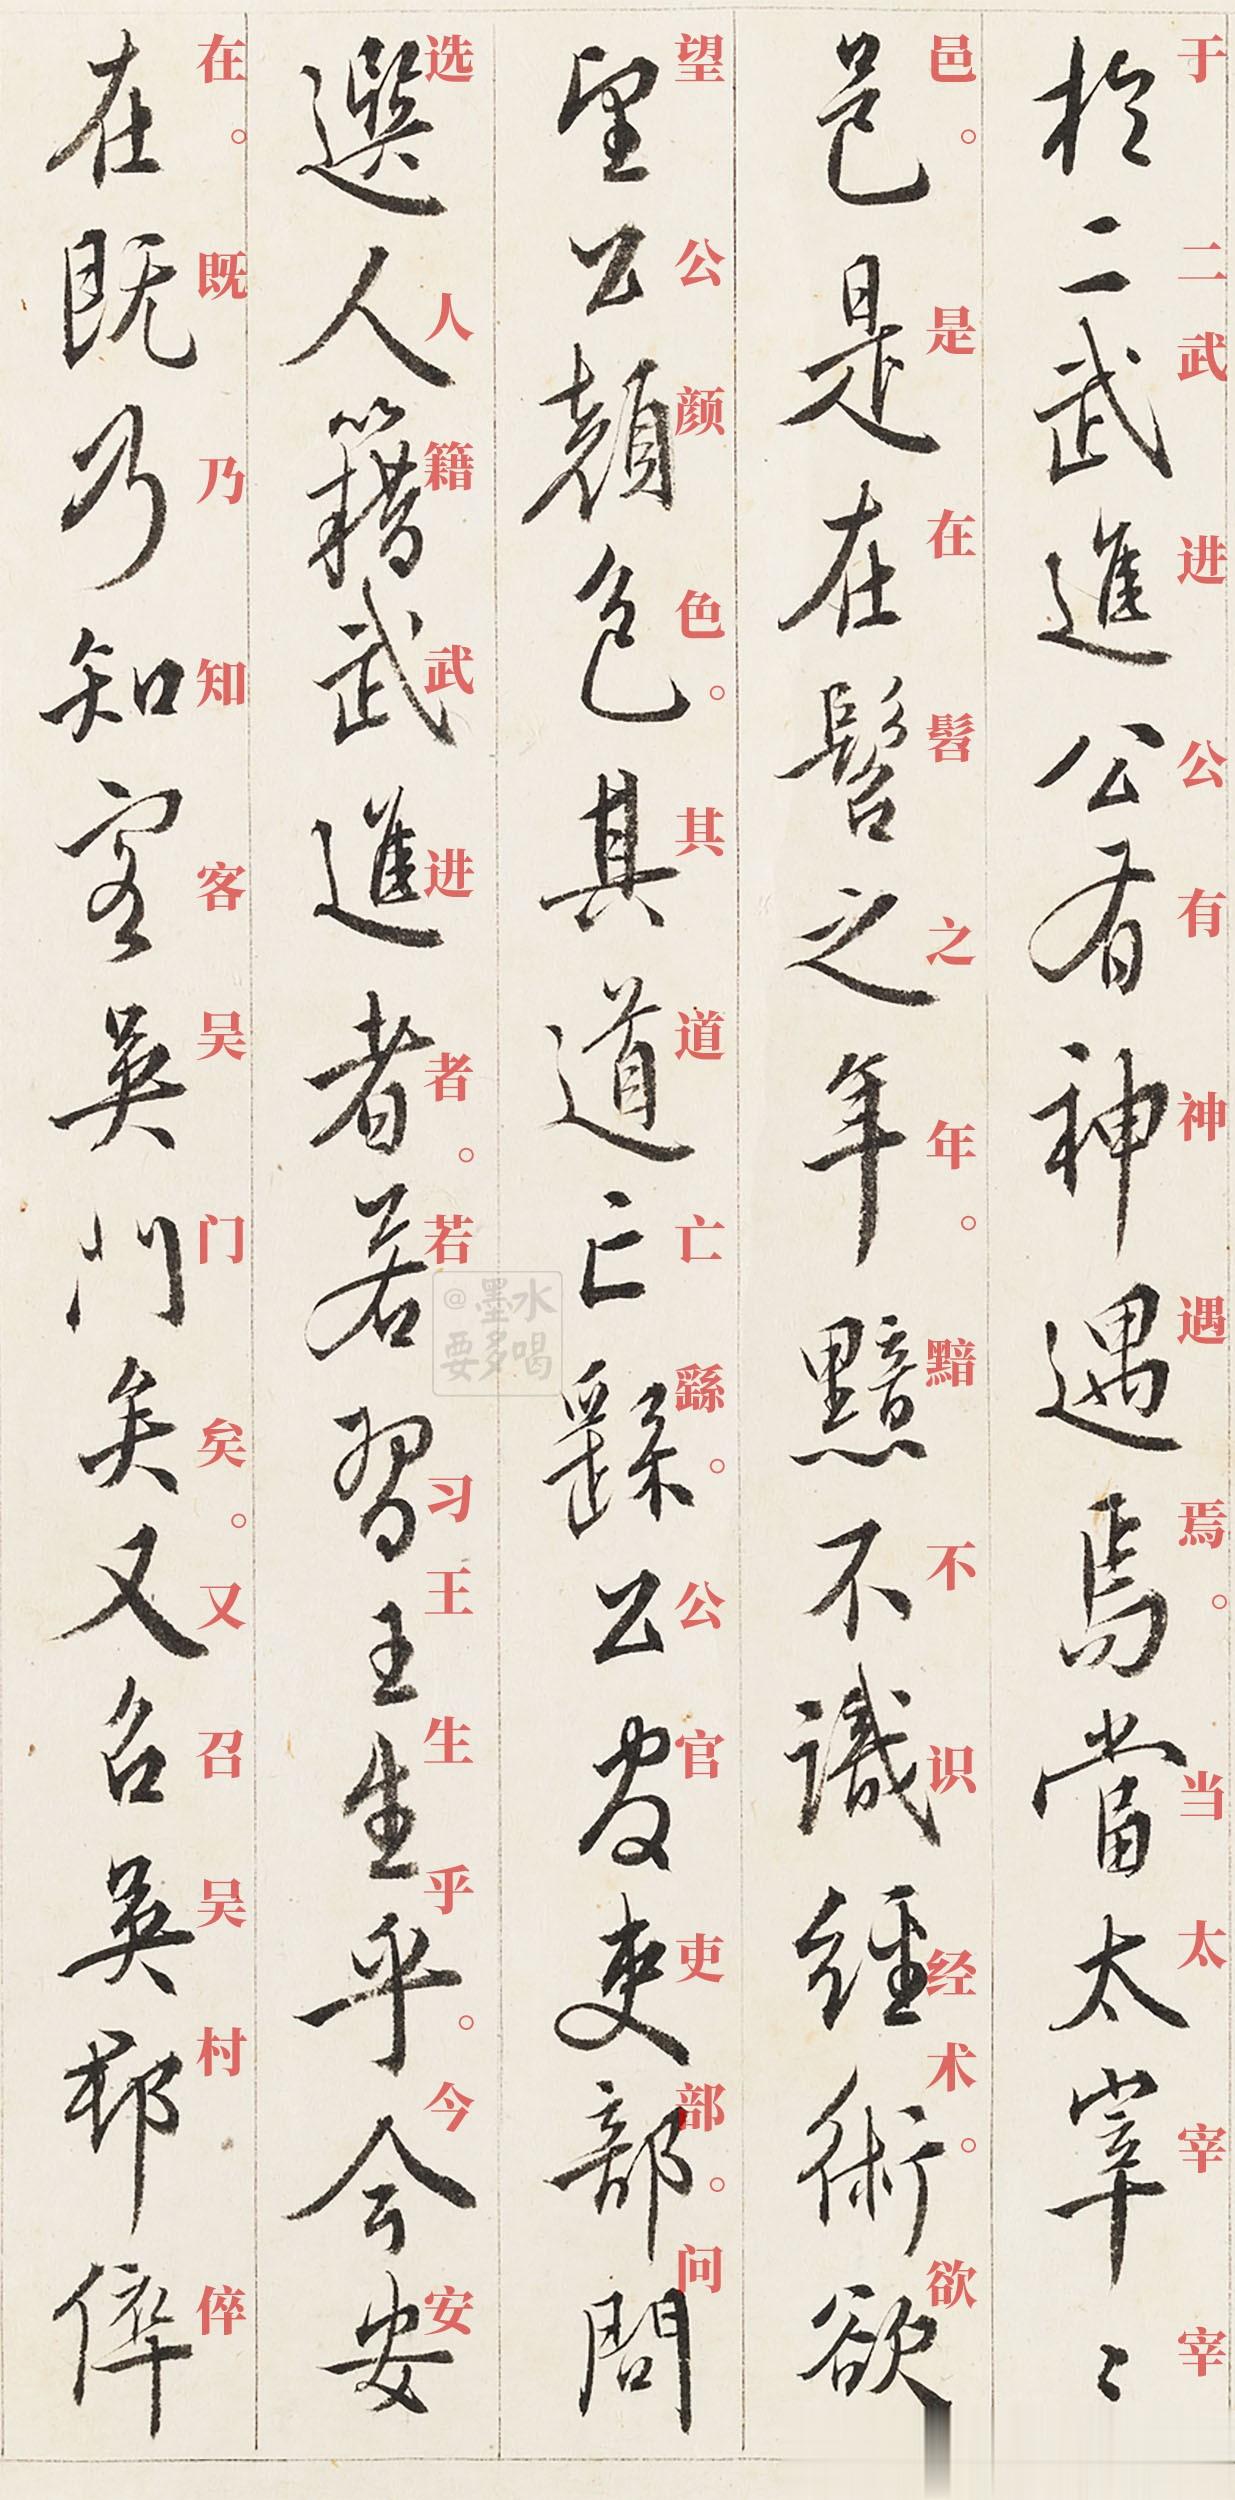 於二武進公有神遇焉當太宰〻
于二武进公有神遇焉。当太宰宰
邑是在髫之年黯不識經術欲
邑。是在髫之年。黯不识经术。欲
望公顏色其道亡繇公官吏部問
望公颜色。其道亡繇。公官吏部。问
選人籍武進者若習王生乎今安
选人籍武进者。若习王生乎。今安
在既乃知客吳門矣又召吳邨倅
在。既乃知客吴门矣。又召吴村倅
@墨水
要多喝